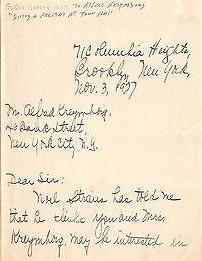 To Alfred Kreymborg
at Town Hall
71 Columbia Heights,
Brooklyn, New York,
Nov. 3, 1937
Mr. Alfred Kreymborg,
Bank Street,
New York City, N.Y.
Dear Sir:
Noel Straus has told me
that he thinks you and Mrs.
Kreymborg may be interested in